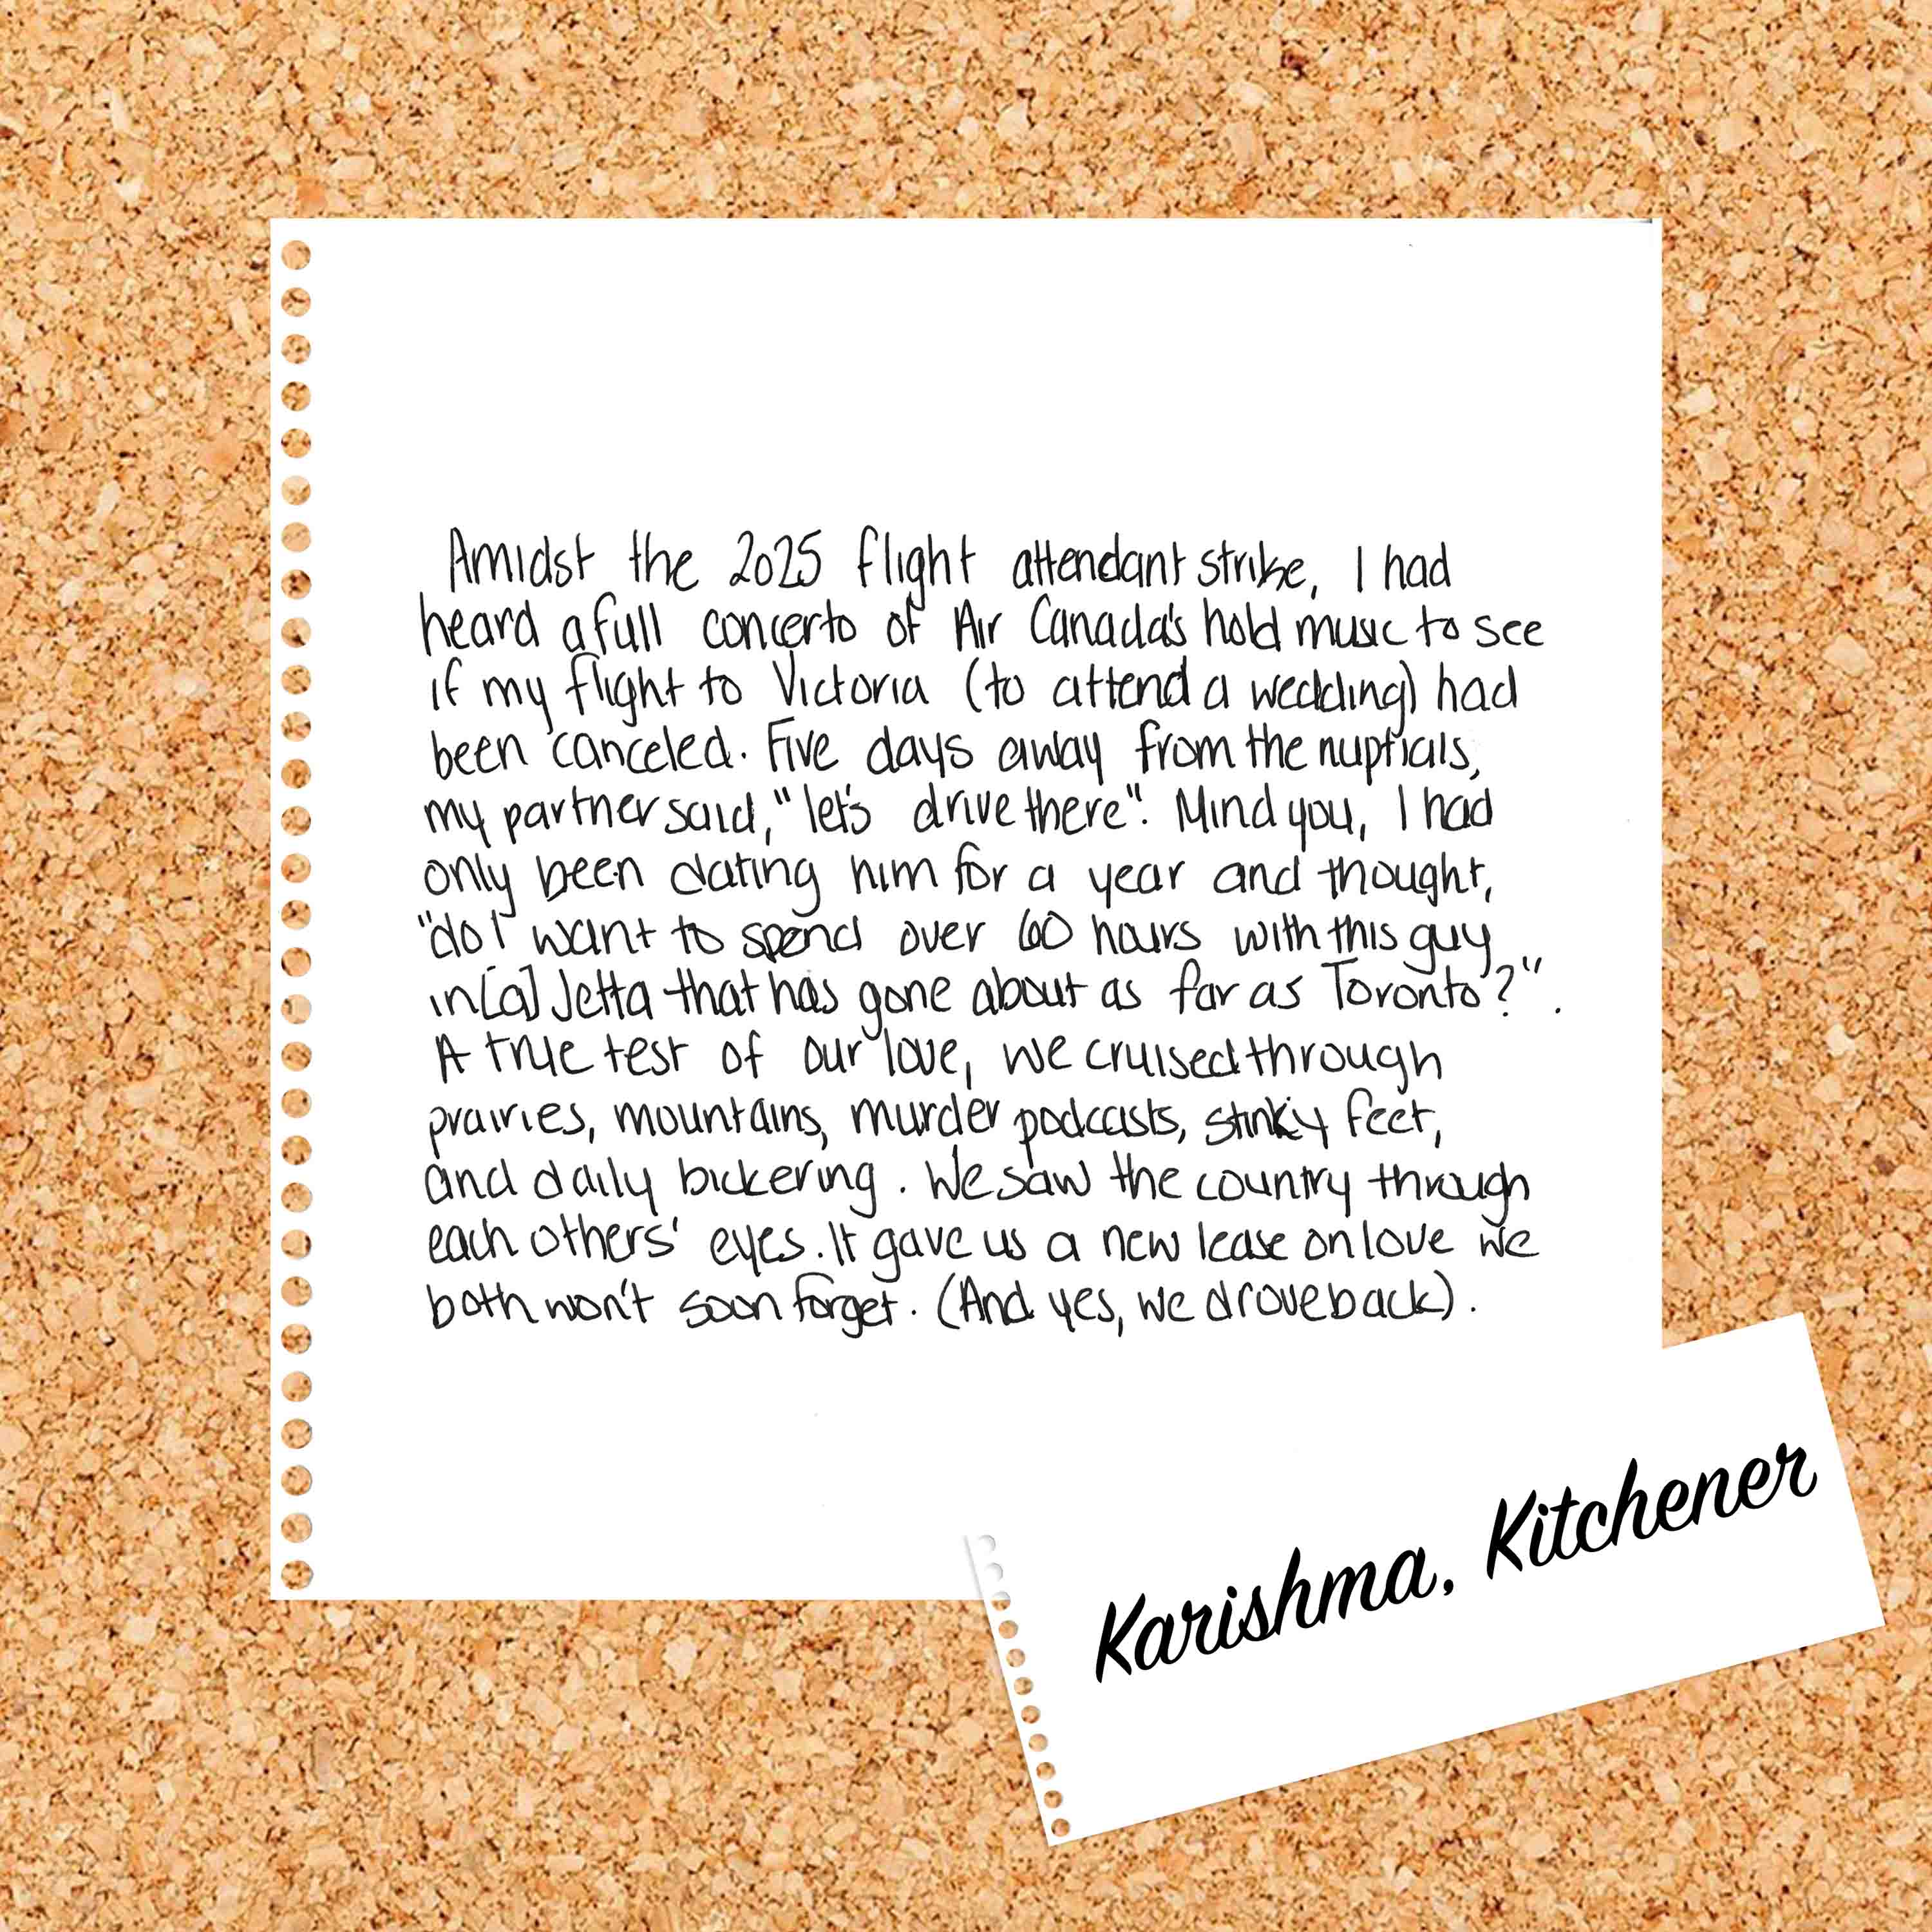 Amidst the 2025 flight attendant strike, I had
heard a full concerto of Air Canada's hold music to see
if my flight to Victoria (to attend a wedding) had
been canceled. Five days away from the nuptials,
my partner said, "let's drive there". Mind you, I had
only been dating him for a year and thought,
"do I want to spend over 60 hours with this guy
in [a] Jetta that has gone about as far as Toronto?".
A true test of our love, we cruised through
prairies, mountains, murder podcasts, stinky feet,
and daily bickering. We saw the country through
each others' eyes. It gave us a new lease on love we
both won't soon forget. (And yes, we drove back).
Karishma, Kitchener